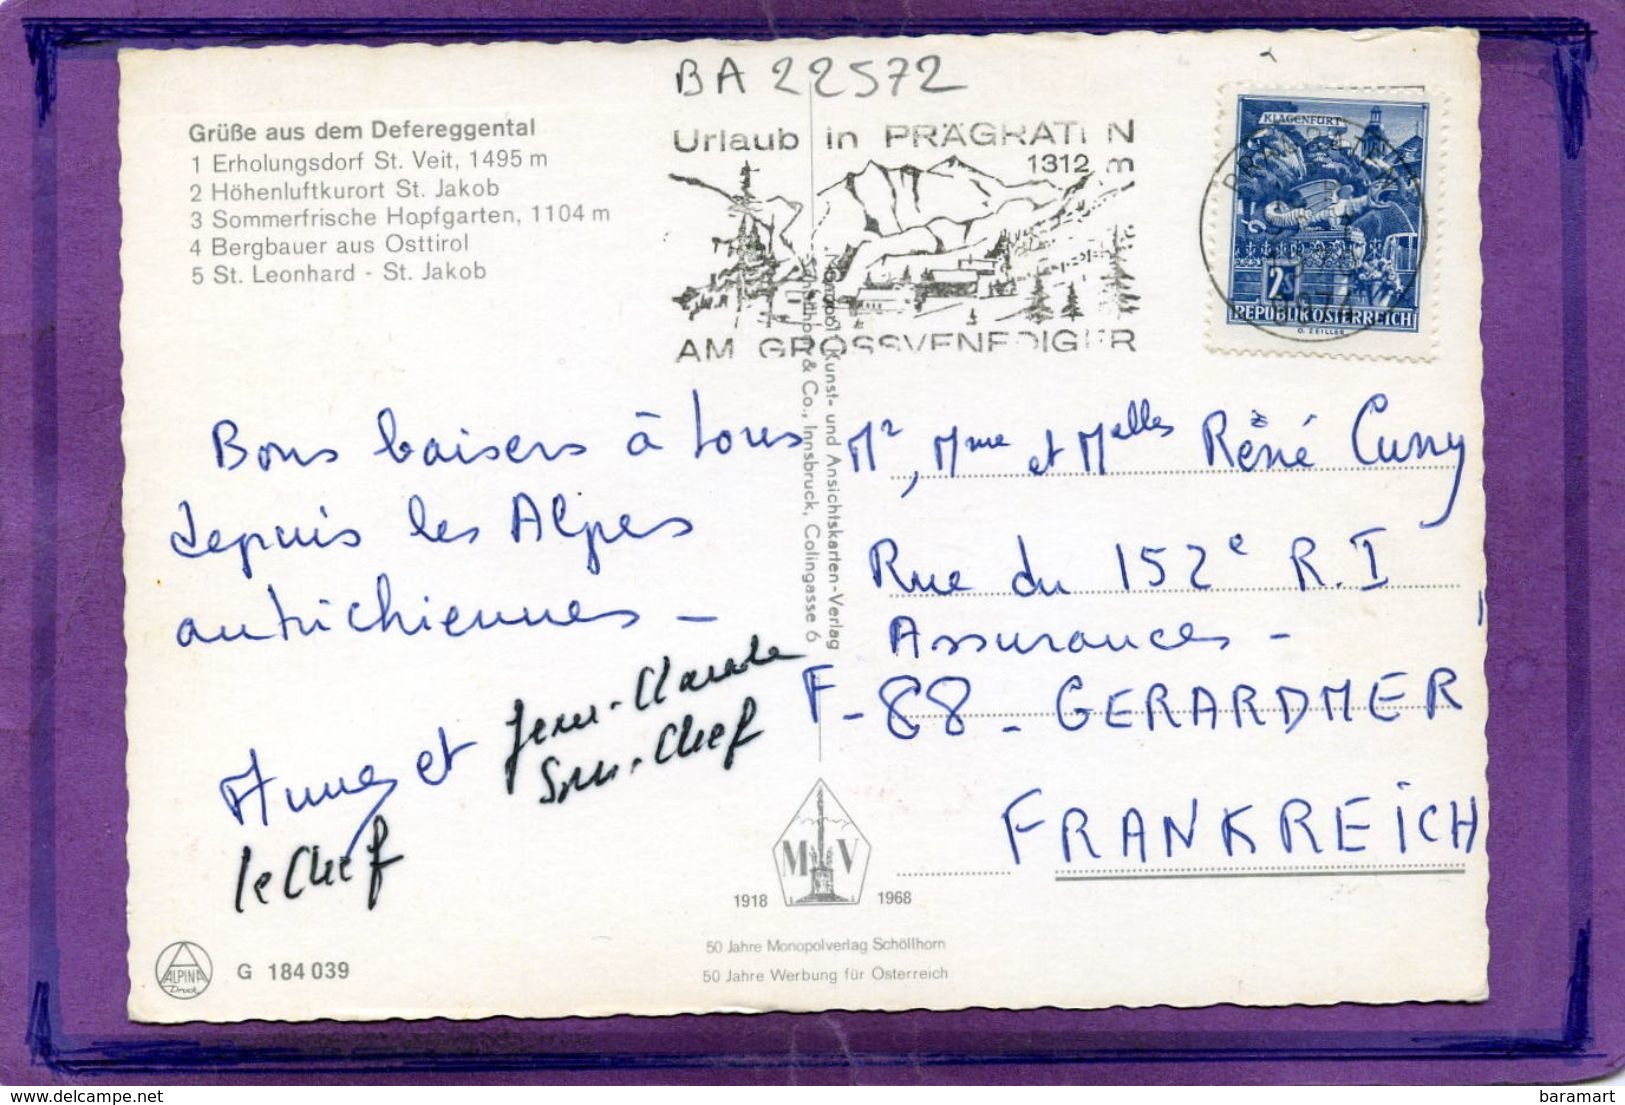 BA 22572
Grüße aus dem Defereggental
1 Erholungsdorf St. Veit, 1495 m
2 Höhenluftkurort St. Jakob
3 Sommerfrische Hopfgarten, 1104 m
4 Bergbauer aus Osttirol
5 St. Leonhard - St. Jakob
Urlaub in PRÄGRATEN
1312 m
AM GROSSVENEDIGER
KLAGENFURT
2S
REPUBLIK ÖSTERREICH
O. ZEILLER
Bons baisers à tous
depuis les Alpes
autrichiennes -
Anne et Jean-Claude
le Chef Sous-Chef
Kunst- und Ansichtskarten-Verlag
Schöllhorn & Co., Innsbruck, Colingasse 6
Mr, Mme et Melles René Cuny
Rue du 152e R.I
Assurances -
F-88- GERARDMER
FRANKREICH
M V
1918 1968
50 Jahre Monopolverlag Schöllhorn
50 Jahre Werbung für Österreich
ALPINA
Druck
G 184 039
delcampe.net
baramart